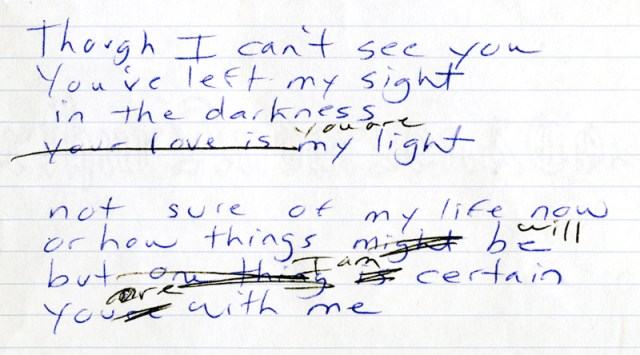 Though I can't see you
You've left my sight
in the darkness
your love is you are my light
not sure of my life now
or how things might be will
but one thing I am is certain
you are with me